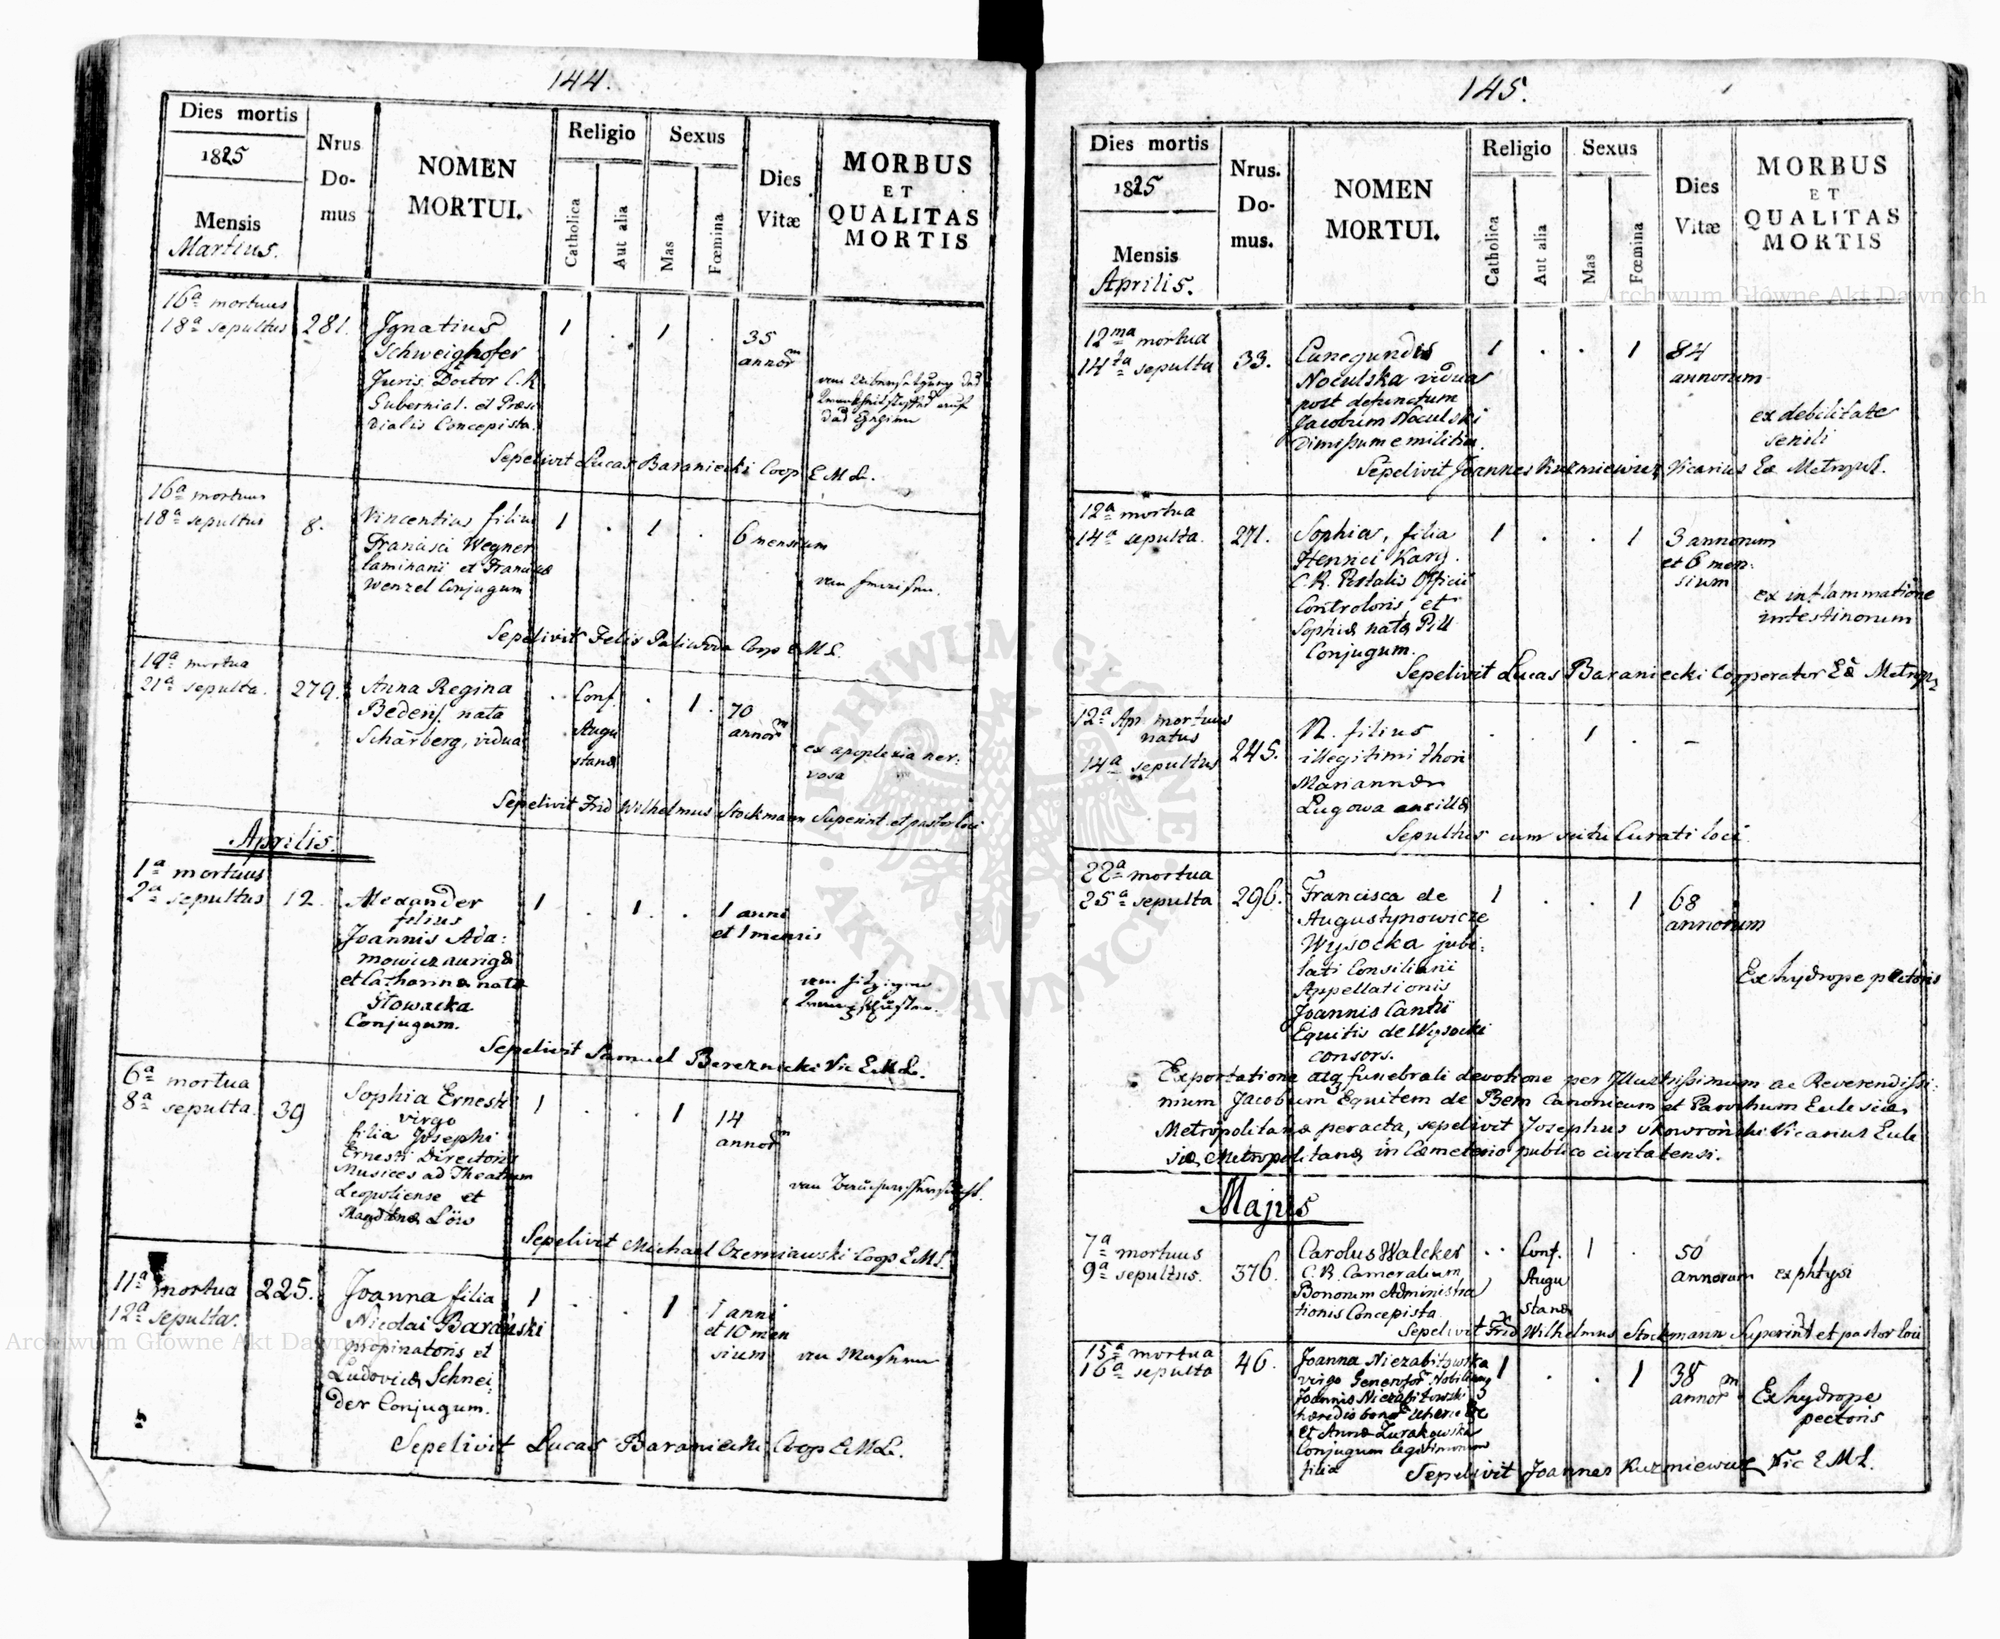 144.
Dies mortis
1825
Mensis
Martius.
Nrus
Do-
mus
NOMEN
MORTUI.
Religio
Catholica
Aut alia
Sexus
Mas
Fœmina
Dies
Vitæ
MORBUS
ET
QUALITAS
MORTIS
16ª mortuus
18ª sepultus 281. 1 . 1 . 35 annorm
Ignatius
Schweighofer
Juris Doctor C. R.
Gubernial. et Præsi
dialis Concepista.
Sepelivit Lucas Baraniecki Coop E M L.
16ª mortuus
18ª sepultus 8. 1 . 1 . 6 mensium
Vincentius filius
Francisci Wegner
laminarii et Franciscæ
Wenzel Conjugum
von
Sepelivit Felix Paliwoda Coop E M L.
19ª mortua
21ª sepulta. 279. . Conf. Augu stanæ . 1 . 70 annorm
Anna Regina
nata
Schärberg, vidua
ex apoplexia ner:
vosa
Sepelivit Frid Wilhelmus Stockmann Superint. et pastor loci
Aprilis.
1ª mortuus
2ª sepultus 12. 1 . 1 . 1 anni et 1 mensis
Alexander
filius
Joannis Ada:
mowicz aurigæ
et Catharinæ nata
Słowacka
Conjugum.
Sepelivit Samuel Bereznicki Vic E M L.
6ª mortua
8ª sepulta. 39 1 . . 1 14 annorm
Sophia Ernesti
virgo
filia Josephi
Ernesti Directoris
Musices ad Theatrum
Leopoliense et
Magdlnæ Löw
Sepelivit Michael Czerniawski Coop E M L.
11ª mortua 225. 1 . . 1 1 anni et 10 men sium
12ª sepulta.
Joanna filia
Nicolai Barański
propinatoris et
Ludovicæ Schnei:
der Conjugum.
von Masern
Sepelivit Lucas Baraniecki Coop E M L.
145.
Dies mortis
1825
Mensis
Aprilis.
Nrus.
Do-
mus.
NOMEN
MORTUI.
Religio
Catholica
Aut alia
Sexus
Mas
Fœmina
Dies
Vitæ
MORBUS
ET
QUALITAS
MORTIS
12ma mortua
14ta sepulta 33. 1 . . 1 84 annorum
Cunegundis
Noculska vidua
post defunctum
Jacobum Noculski
dimissum e militia.
ex debilitate
senili
Sepelivit Joannes Kuzmiewicz Vicarius Eæ Metropol.
12ª mortua
14ª sepulta. 271. 1 . . 1 3 annorum et 6 men: sium
Sophia, filia
Henrici Karg.
C. R. Postalis Officii
Controloris et
Sophiæ natæ Pill
Conjugum.
ex inflammatione
intestinorum
Sepelivit Lucas Baraniecki Cooperator Eæ Metrop.
12ª Apr. mortuus
natus
14ª sepultus 245. . . 1 . –
N. filius
illegitimi thori
Mariannæ
Lugowa ancillæ
Sepultus cum scitu Curati loci
22ª mortua
25ª sepulta 296. 1 . . 1 68 annorum
Francisca de
Augustynowicze
Wysocka jubi:
lati Consiliarii
Appellationis
Joannis Cantii
Equitis de Wysocki
consors.
Ex hydrope pectoris
Exportatione atq funebrali devotione per Illustrissimum ac Reverendissi:
mum Jacobum Equitem de Bem Canonicum et Parochum Eclesiæ
Metropolitanæ peracta, sepelivit Josephus Skowroński Vicarius Ecle
siæ Metropolitanæ in Cæmeterio publico civitatensi.
Majus
7ª mortuus
9ª sepultus. 376. . . Conf. Augu stanæ 1 . 50 annorum
Carolus Walcker
C. R. Cameralium
Bonorum Administra
tionis Concepista
ex phtysi
Sepelivit Frid Wilhelmus Stockmann Superint et pastor loci
15ª mortua
16ª sepulta 46. 1 . . 1 38 annorm
Joanna Niezabitowska
virgo Generosor Nobilium
Joannis Niezabitowski
hæredis bonor Uherce &c
et Annæ Zurakowska
Conjugum legitimorum
filia
Ex hydrope
pectoris
Sepelivit Joannes Kuzmiewicz Vic E M L.
Archiwum Główne Akt Dawnych
Archiwum Główne Akt Dawnych
ARCHIWUM GŁÓWNE
AKT DAWNYCH